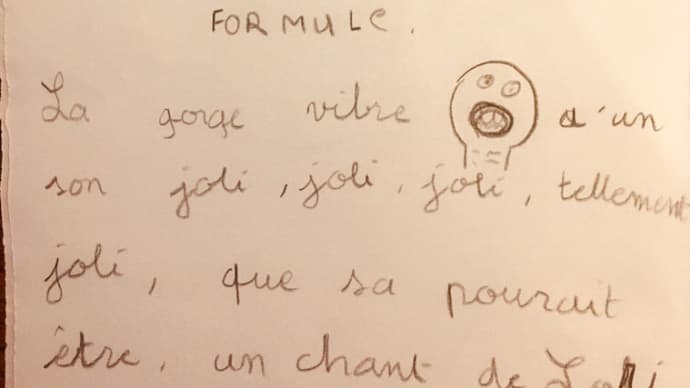 FORMULE.
La gorge vibre d'un
son joli, joli, joli, tellement
joli, que sa pourait
être, un chant de